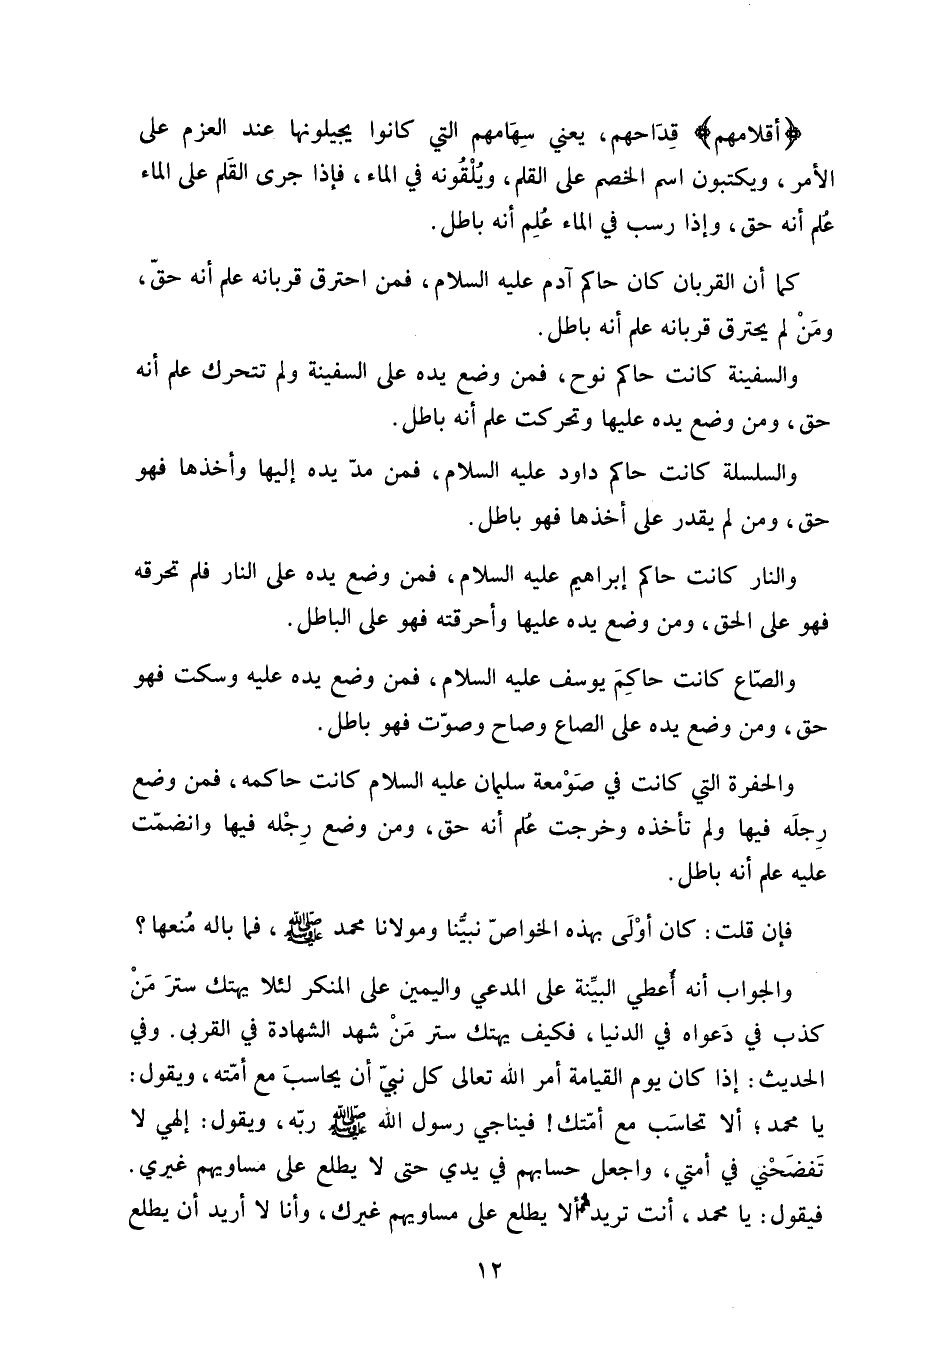 ﴿أقلامهم﴾ قِدَاحهم، يعني سِهَامهم التي كانوا يجيلونها عند العزم على
الأمر، ويكتبون اسم الخصم على القلم، ويُلْقُونه في الماء، فإذا جرى القَلم على الماء
عُلم أنه حق، وإذا رسب في الماء عُلِم أنه باطل.
كما أن القربان كان حاكم آدم عليه السلام، فمن احترق قربانه علم أنه حقّ،
ومَنْ لم يحترق قربانه علم أنه باطل.
والسفينة كانت حاكم نوح، فمن وضع يده على السفينة ولم تتحرك علم أنه
حق، ومن وضع يده عليها وتحركت علم أنه باطل.
والسلسلة كانت حاكم داود عليه السلام، فمن مدّ يده إليها وأخذها فهو
حق، ومن لم يقدر على أخذها فهو باطل.
والنار كانت حاكم إبراهيم عليه السلام، فمن وضع يده على النار فلم تحرقه
فهو على الحق، ومن وضع يده عليها وأحرقته فهو على الباطل.
والصّاع كانت حاكِمَ يوسف عليه السلام، فمن وضع يده عليه وسكت فهو
حق، ومن وضع يده على الصاع وصاح وصوّت فهو باطل.
والحفرة التي كانت في صَوْمعة سليمان عليه السلام كانت حاكمه، فمن وضع
رِجلَه فيها ولم تأخذه وخرجت عُلم أنه حق، ومن وضع رِجْله فيها وانضمّت
عليه علم أنه باطل.
فإن قلت: كان أوْلَى بهذه الخواصّ نبيُّنا ومولانا محمد ﷺ، فما باله مُنعها؟
والجواب أنه أُعطي البيِّنة على المدعي واليمين على المنكر لئلا يهتك سترَ مَنْ
كذب في دَعواه في الدنيا، فكيف يهتك ستر مَنْ شهد الشهادة في القربى. وفي
الحديث: إذا كان يوم القيامة أمر الله تعالى كل نبيّ أن يحاسبَ مع أمّته، ويقول:
يا محمد؛ ألا تحاسَب مع أمّتك! فيناجي رسول الله ﷺ ربّه، ويقول: إلهي لا
تَفضَحْني في أمتي، واجعل حسابهم في يدي حتى لا يطلع على مساويهم غيري.
فيقول: يا محمد، أنت تريد ألا يطلع على مساويهم غيرك، وأنا لا أريد أن يطلع
١٢